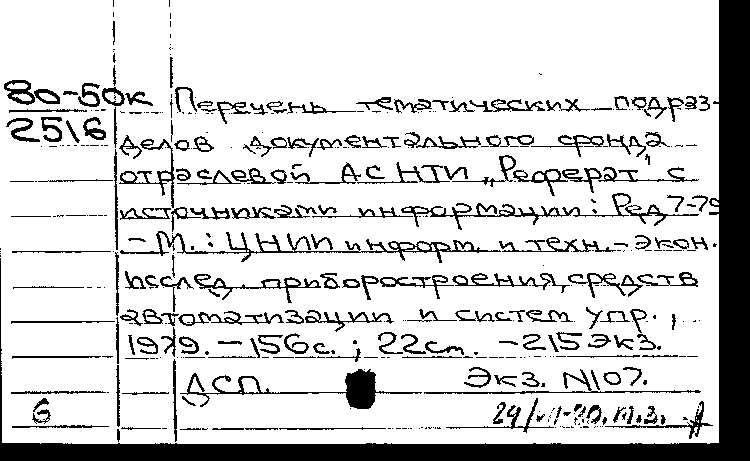 80-50к Перечень тематических подраз-
2516 делов документального фонда
отраслевой АС НТИ „Реферат" с
источниками информации: Ред 7-79
– М.: ЦНИИ информ. и техн.-экон.
исслед. приборостроения, средств
автоматизации и систем упр.,
1979. – 156с.; 22см. – 215 экз.
ДСП. Экз. N107.
6 29/VII-80. т.з.